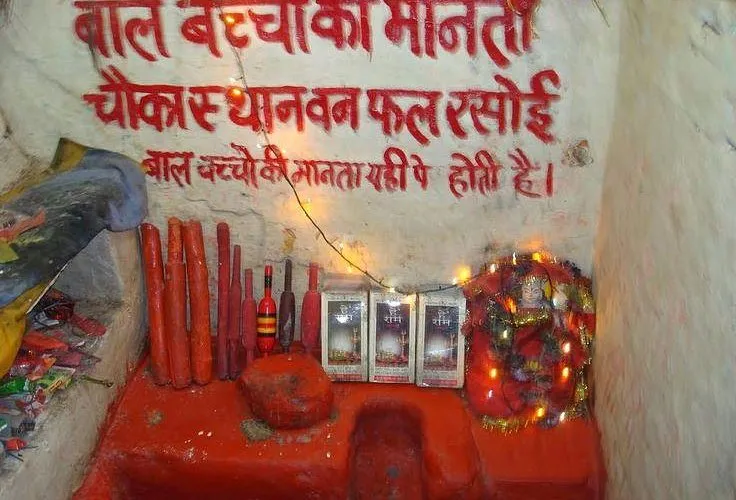 बाल बच्चो की मानता
चौका स्थान वन फल रसोई
बाल बच्चो की मानता यही पे होती है।
राम
राम